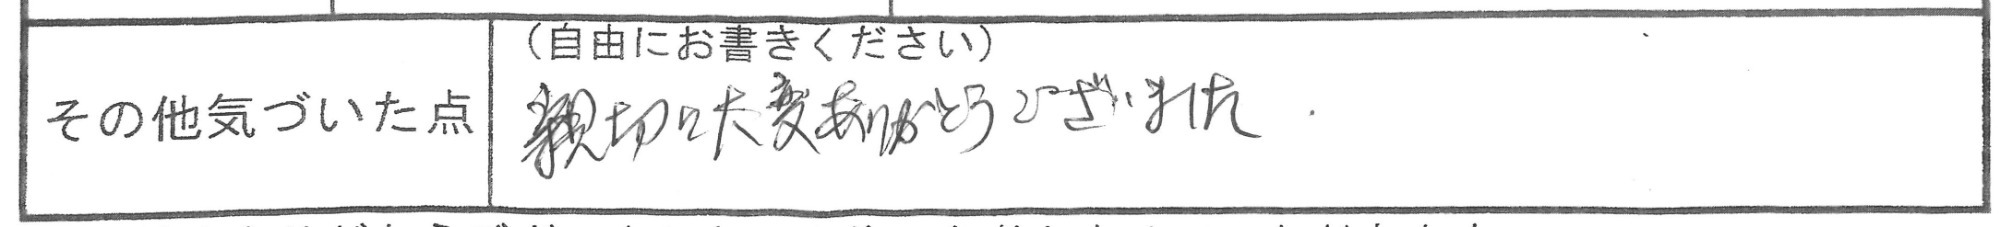 その他気づいた点
(自由にお書きください)
親切に大変ありがとうございました.